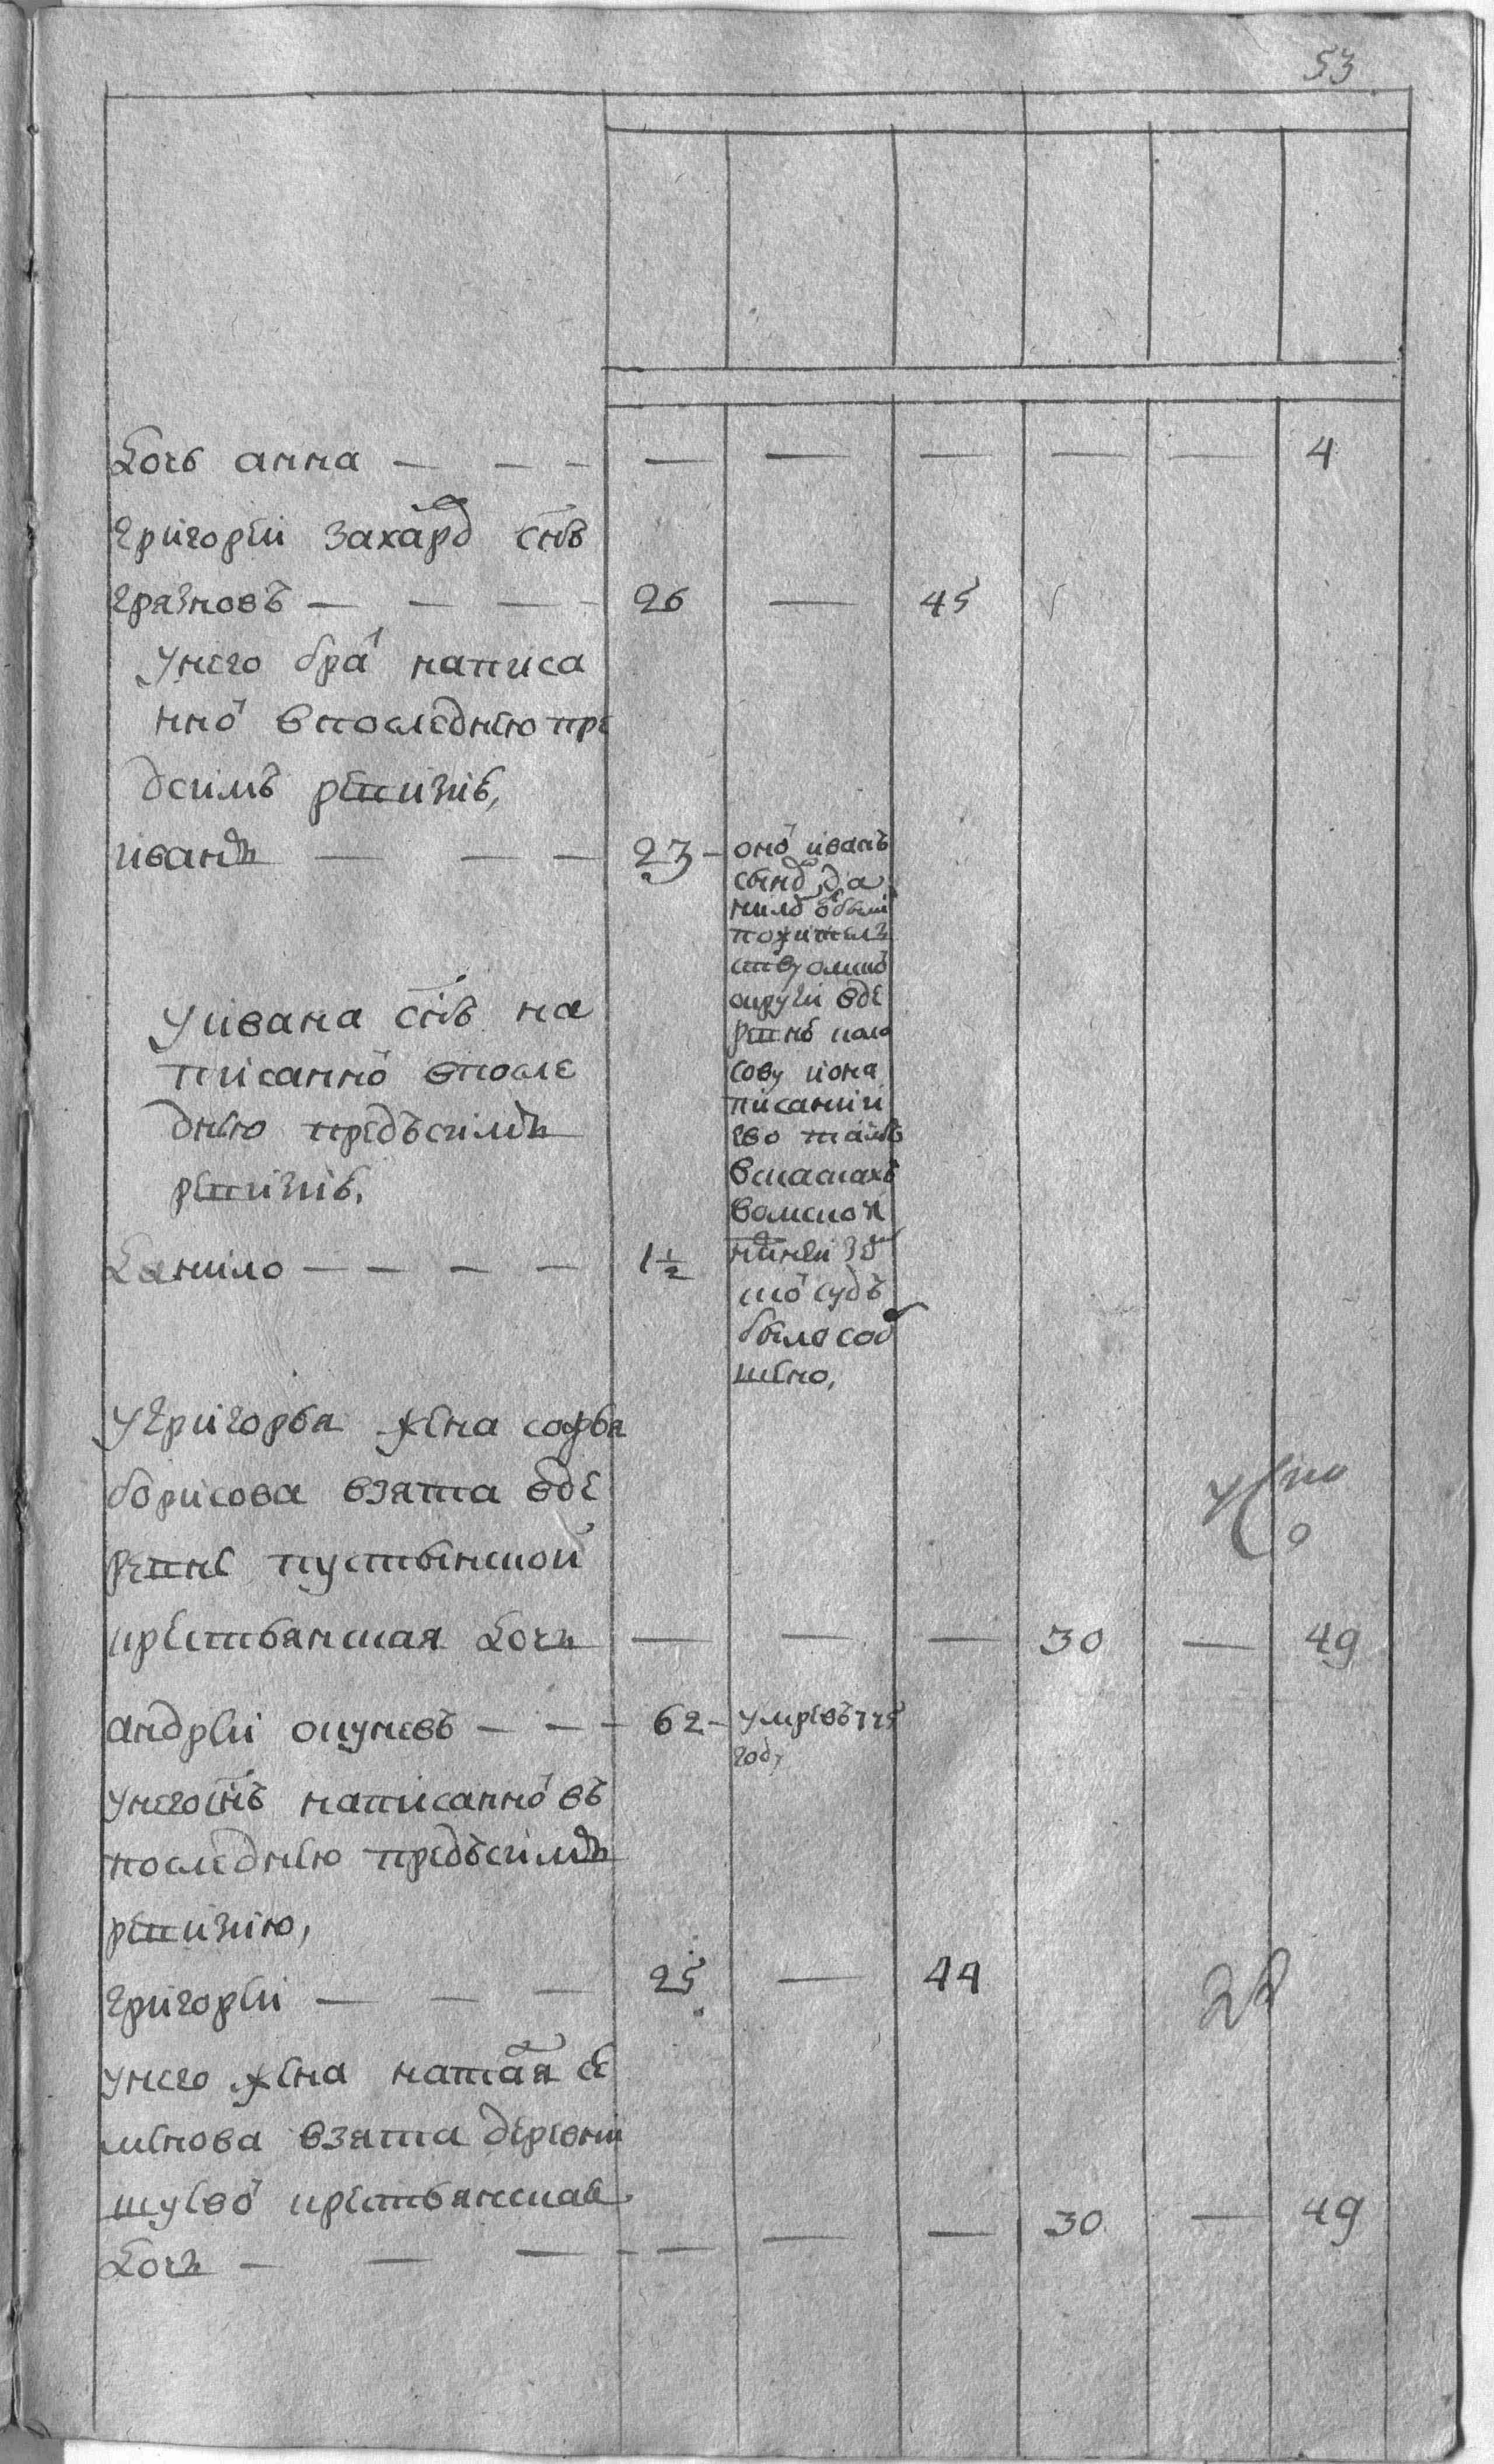 53
Дочь анна — — — — — — — — 4
григорей захаро снъ
грязновъ — — — 26 — 45
у него бра т написа
нно й в последнею пре
дсимъ ревизиѣ,
иванъ — — — 23 —
оно й иванъ
сыномъ да
нило
по жител
ству
округи вде
ревнѣ
сову и она
писании
ево тамъ
волской
нижней
судъ
было соо
щено,
у ивана снъ на
писанно й в после
днею предъ симъ
ревизиѣ,
Данило — — — — 1½
у григорья жена софья
борисова взята в де
ревне пустынской
крестьянская дочь — — — 30 — 49
андрей окуневъ — — — 62 — умре въ 775
году
у него снъ написанно й въ
последнею предъ симъ
ревизию,
григорей — — — 25 — 44
у него жена наталя се
менова взята деревни
шуево й крестьянская
Дочь — — — — — — 30 — 49